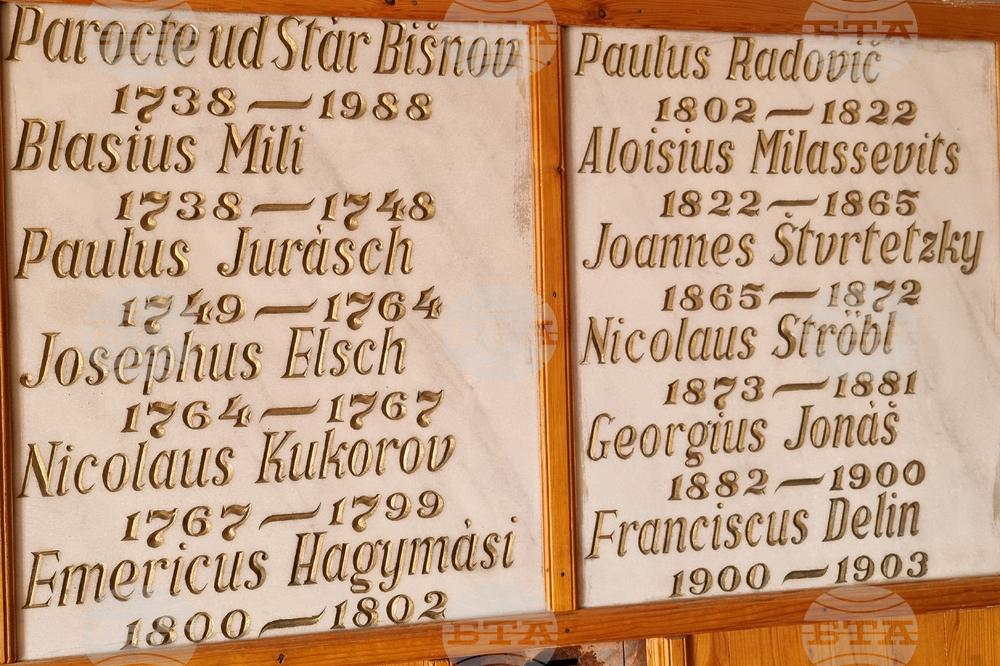 Parocte ud Stár Bišnov
1738 — 1988
Blasius Mili
1738 — 1748
Paulus Jurásch
1749 — 1764
Josephus Elsch
1764 — 1767
Nicolaus Kukorov
1767 — 1799
Emericus Hagymási
1800 — 1802
Paulus Radovič
1802 — 1822
Aloisius Milassevits
1822 — 1865
Joannes Štvrtetzky
1865 — 1872
Nicolaus Ströbl
1873 — 1881
Georgius Jonáš
1882 — 1900
Franciscus Delin
1900 — 1903
БТА